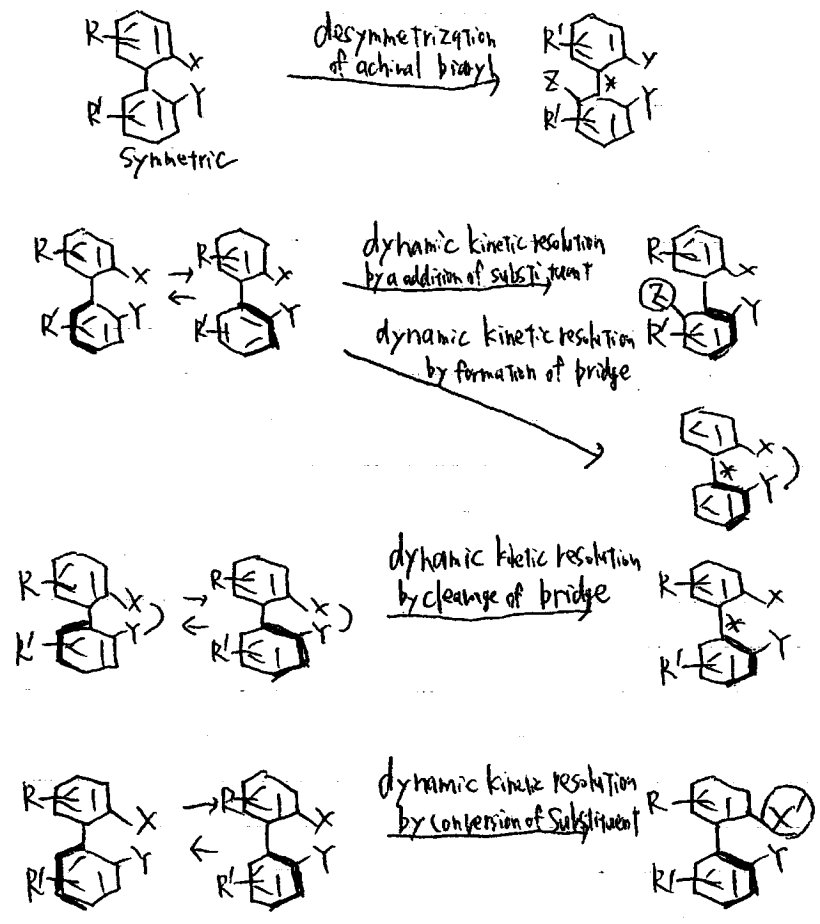 R
X
R'
Y
Symmetric
desymmetrization
of achiral biaryl
R'
Y
Z
*
R'
Y
R
X
R'
Y
R
X
R'
Y
dynamic kinetic resolution
by a addition of substituent
R
X
Z
R'
Y
dynamic kinetic resolution
by formation of bridge
X
*
Y
R
X
R'
Y
R
X
R'
Y
dynamic kinetic resolution
by cleavage of bridge
R
X
*
R'
Y
R
X
R'
Y
R
X
R'
Y
dynamic kinetic resolution
by conversion of Substituent
R
X'
R'
Y